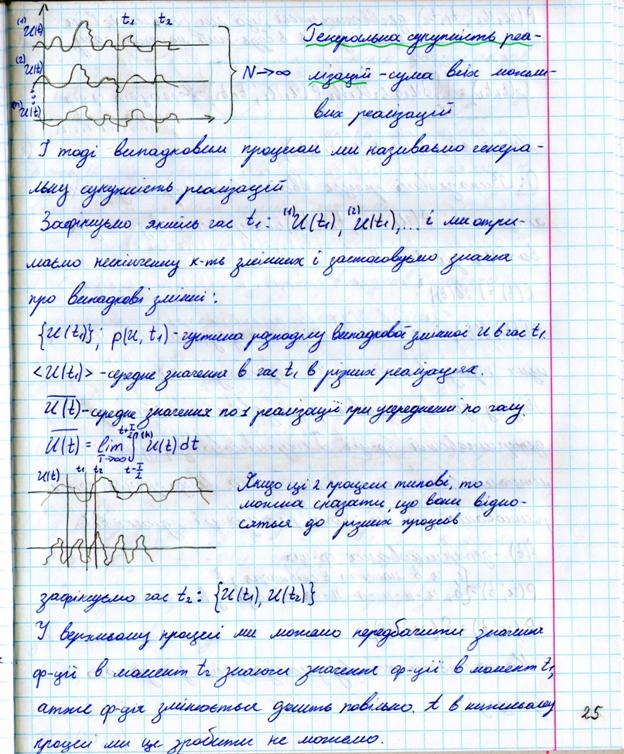 ⁽¹⁾U(t) t₁ t₂
⁽²⁾U(t)
⁽ⁿ⁾U(t)
} N→∞
Генеральна сукупність реа-
лізацій - сума всіх можли-
вих реалізацій
І тоді випадковим процесом ми називаємо генера-
льну сукупність реалізацій
Зафіксуємо якийсь час t₁: ⁽¹⁾U(t₁), ⁽²⁾U(t₁), ... і ми отри-
маємо нескінченну к-ть змінних і застосовуємо знання
про випадкові змінні:
{U(t₁)}; p(u, t₁) - густина розподілу випадкової змінної u в час t₁
<U(t₁)> - середнє значення в час t₁ в різних реалізаціях.
U̅(̅t̅)̅ - середнє значення по 1 реалізації при усередненні по часу.
U̅(̅t̅)̅ = lim T→∞ ∫ t-T/2 t+T/2 ⁽ᵏ⁾U(t)dt
U(t) t₁ t₂
Якщо ці 2 процеси типові, то
можна сказати, що вони відно-
сяться до різних процесів
зафіксуємо час t₂: {U(t₁), U(t₂)}
У верхньому процесі ми можемо передбачити значення
ф-ції в момент t₂ знаючи значення ф-ції в момент t₁,
адже ф-ція змінюється досить повільно. А в нижньому
процесі ми це зробити не можемо.
25